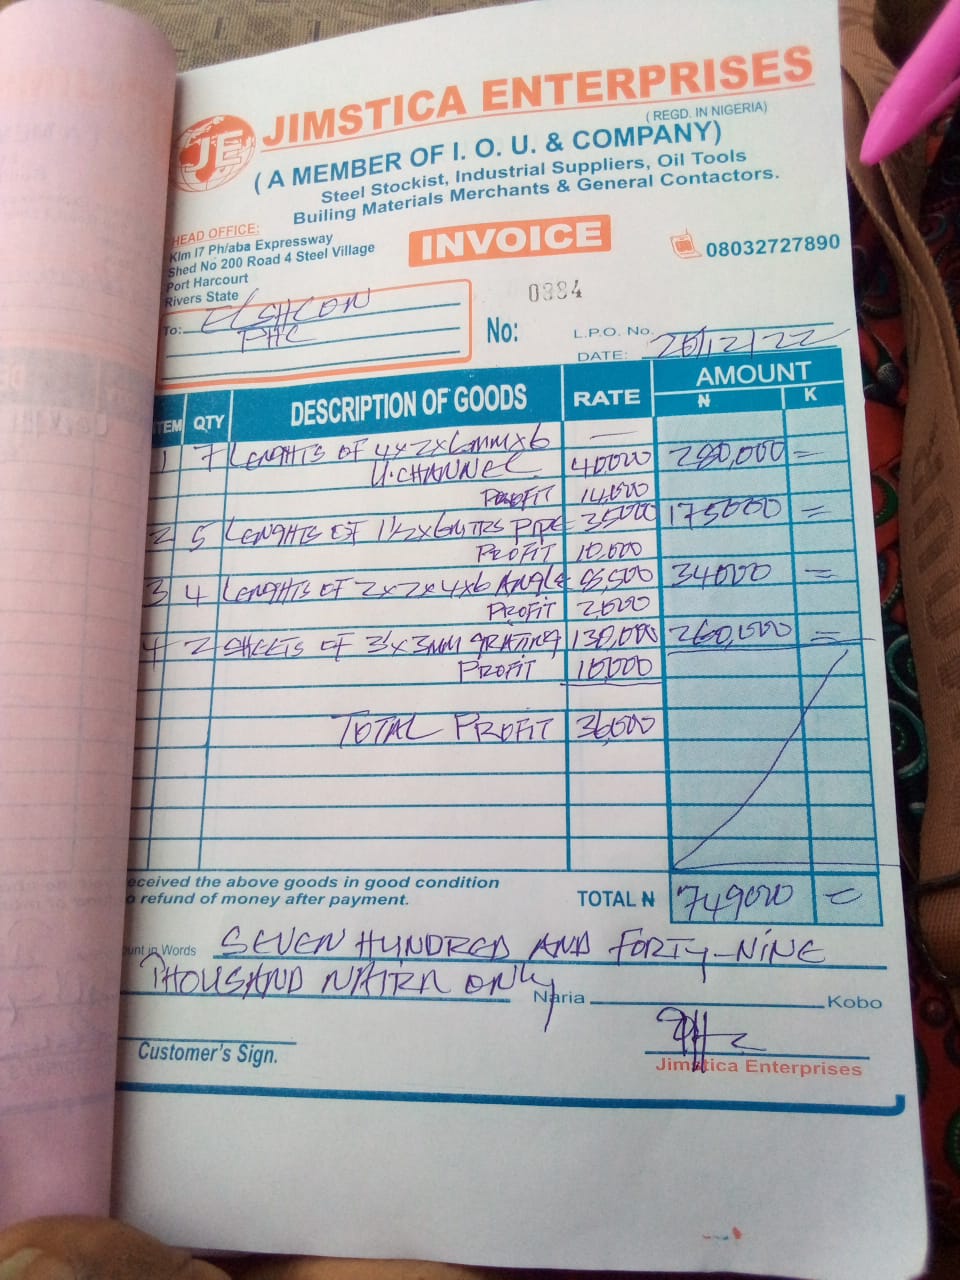 JIMSTICA ENTERPRISES
( REGD. IN NIGERIA)
JE
( A MEMBER OF I. O. U. & COMPANY)
Steel Stockist, Industrial Suppliers, Oil Tools
Builing Materials Merchants & General Contactors.
HEAD OFFICE:
Klm I7 Ph/aba Expressway
Shed No 200 Road 4 Steel Village
Port Harcourt
Rivers State
INVOICE
08032727890
0984
To: ELSHCON
PHC
No:
L.P.O. No.
DATE: 26/12/22
TEM QTY DESCRIPTION OF GOODS RATE AMOUNT
₦ K
1 7 LENGHTS OF 4x2x6mmx6 —
U.CHANNEL 40000 280,000 =
PROFIT 14,000
2 5 LENGHTS OF 1½x6MTRS PIPE 35000 175000 =
PROFIT 10,000
3 4 LENGHTS OF 2x2x4x6 ANGLE 8,500 34000 =
PROFIT 2,000
4 2 SHEETS OF 3x3MM GRATING 130,000 260,000 =
PROFIT 10,000
TOTAL PROFIT 36,000
eceived the above goods in good condition
o refund of money after payment.
TOTAL ₦ 749000 =
unt in Words SEVEN HUNDRED AND FORTY-NINE
THOUSAND NAIRA ONLY Naria Kobo
Customer's Sign.
Jimstica Enterprises